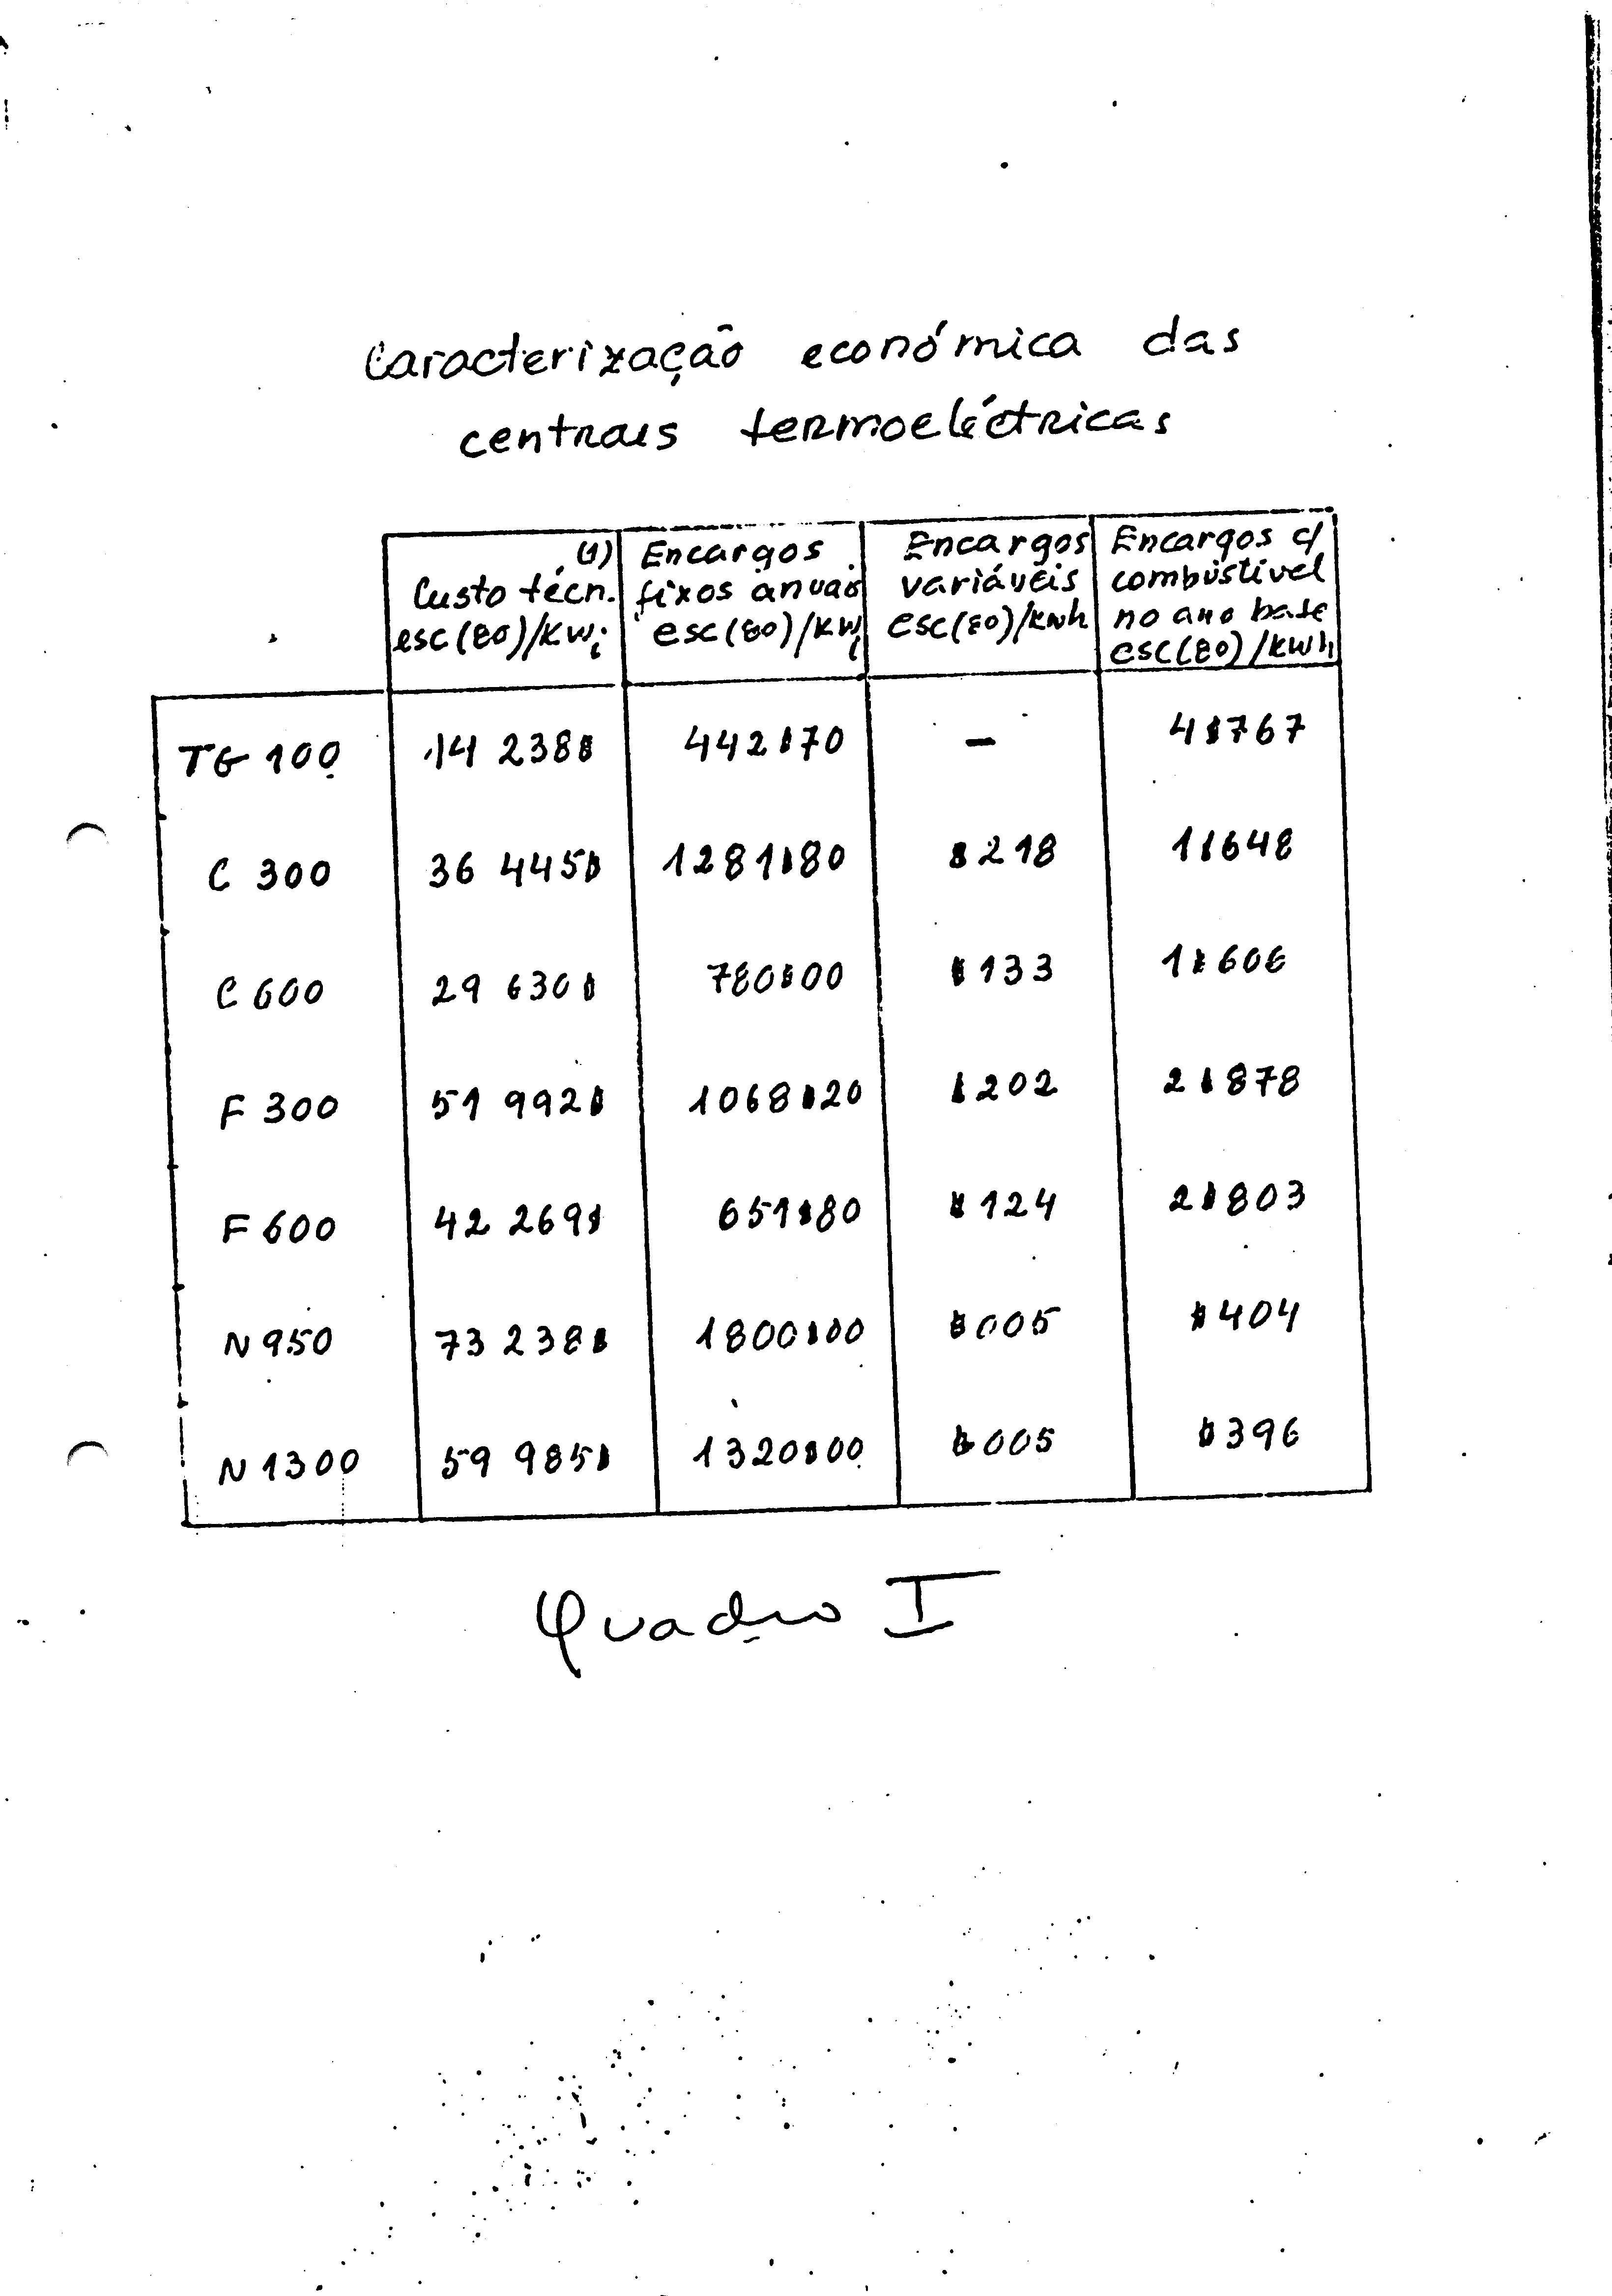 Caracterização económica das
centrais termoeléctricas
(1) Custo técn. esc(80)/kWi
Encargos fixos anuais esc(80)/kWi
Encargos variáveis esc(80)/kwh
Encargos c/ combústivel no ano base esc(80)/kWh
TG 100 14 238$ 442$70 - 4$767
C 300 36 445$ 1281$80 $218 1$648
C 600 29 630$ 780$00 $133 1$606
F 300 51 992$ 1068$20 $202 2$878
F 600 42 269$ 651$80 $124 2$803
N 950 73 238$ 1800$00 $005 $404
N 1300 59 985$ 1320$00 $005 $396
Quadro I